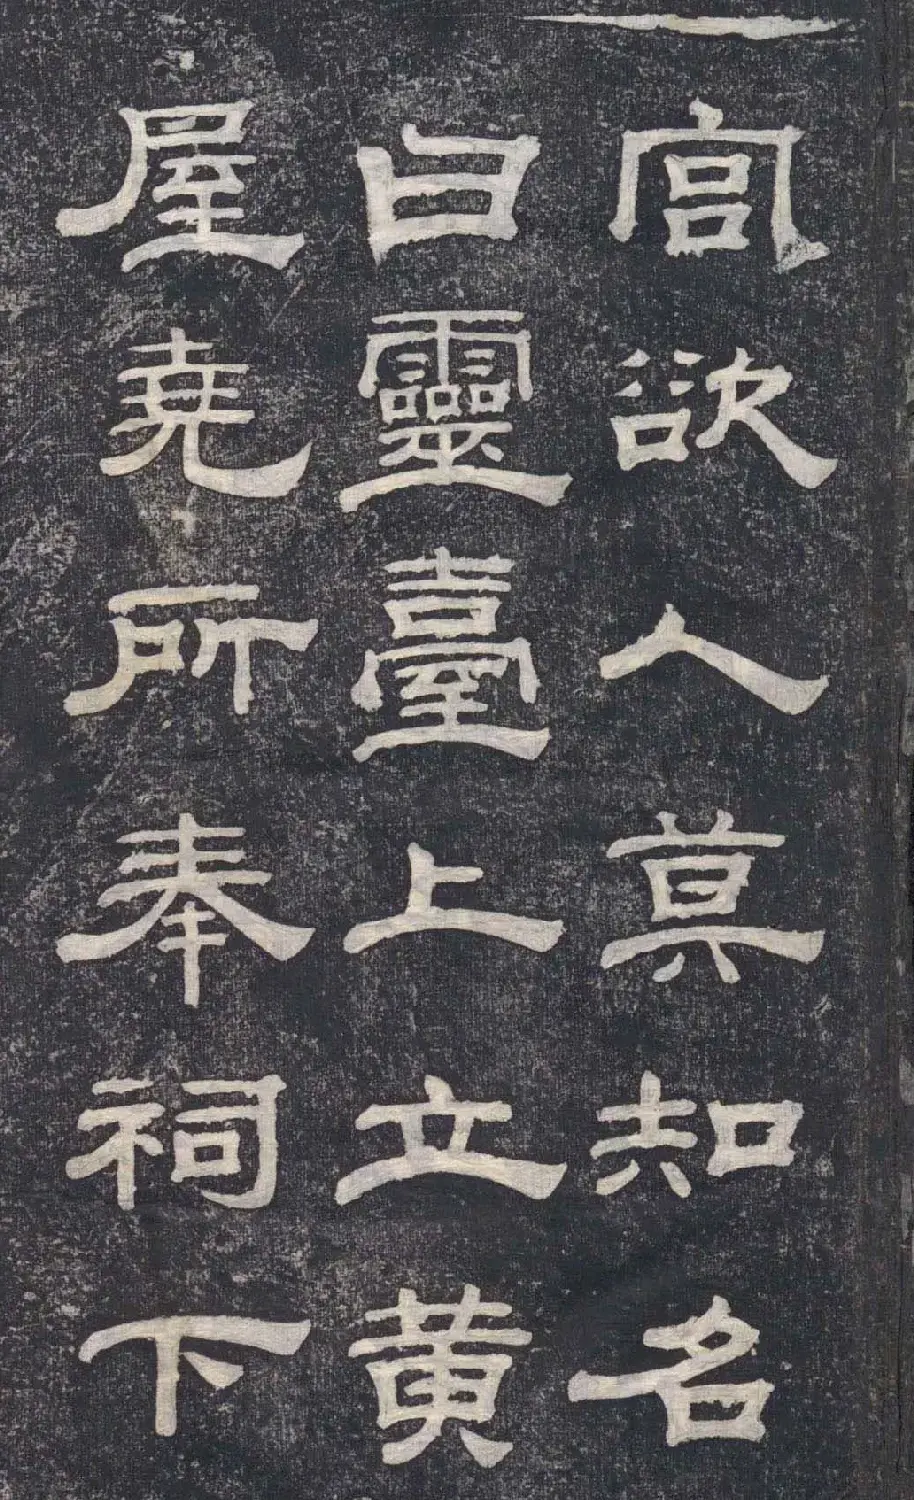 宮欲人莫知名
曰靈臺上立黃
屋堯所奉祠下